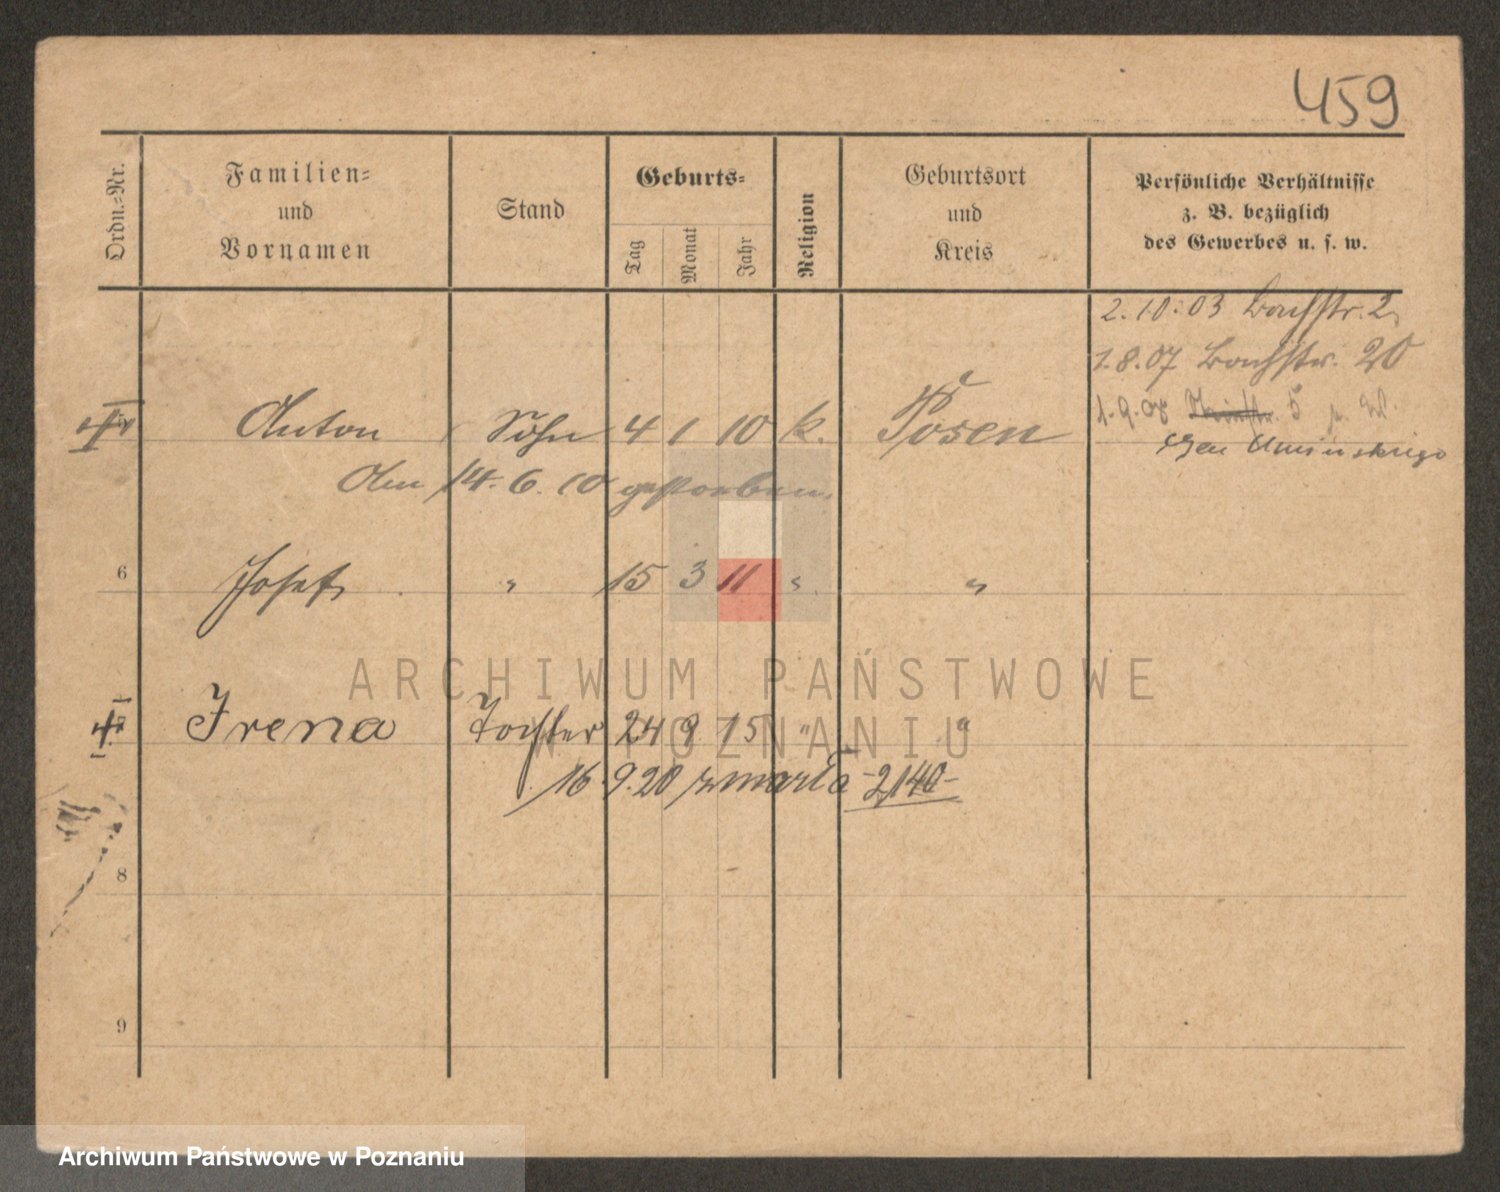 459
Ordn.-Nr.
Familien-
und
Vornamen
Stand
Geburts-
Tag
Monat
Jahr
Religion
Geburtsort
und
Kreis
Persönliche Verhältnisse
z. B. bezüglich
des Gewerbes u. s. w.
2.10.03 Bachstr. 2
1.8.07 Bachstr. 20
1.9.08 5
Gen Umińskiego
Anton Sohn 4 1 10 k. Posen
Am 14.6.10 gestorben.
6 Josef " 15 3 11 " "
ARCHIWUM PAŃSTWOWE
W POZNANIU
Irena Tochter 24 9 15 " "
16.9.20 zmarła -2140-
8
9
Archiwum Państwowe w Poznaniu